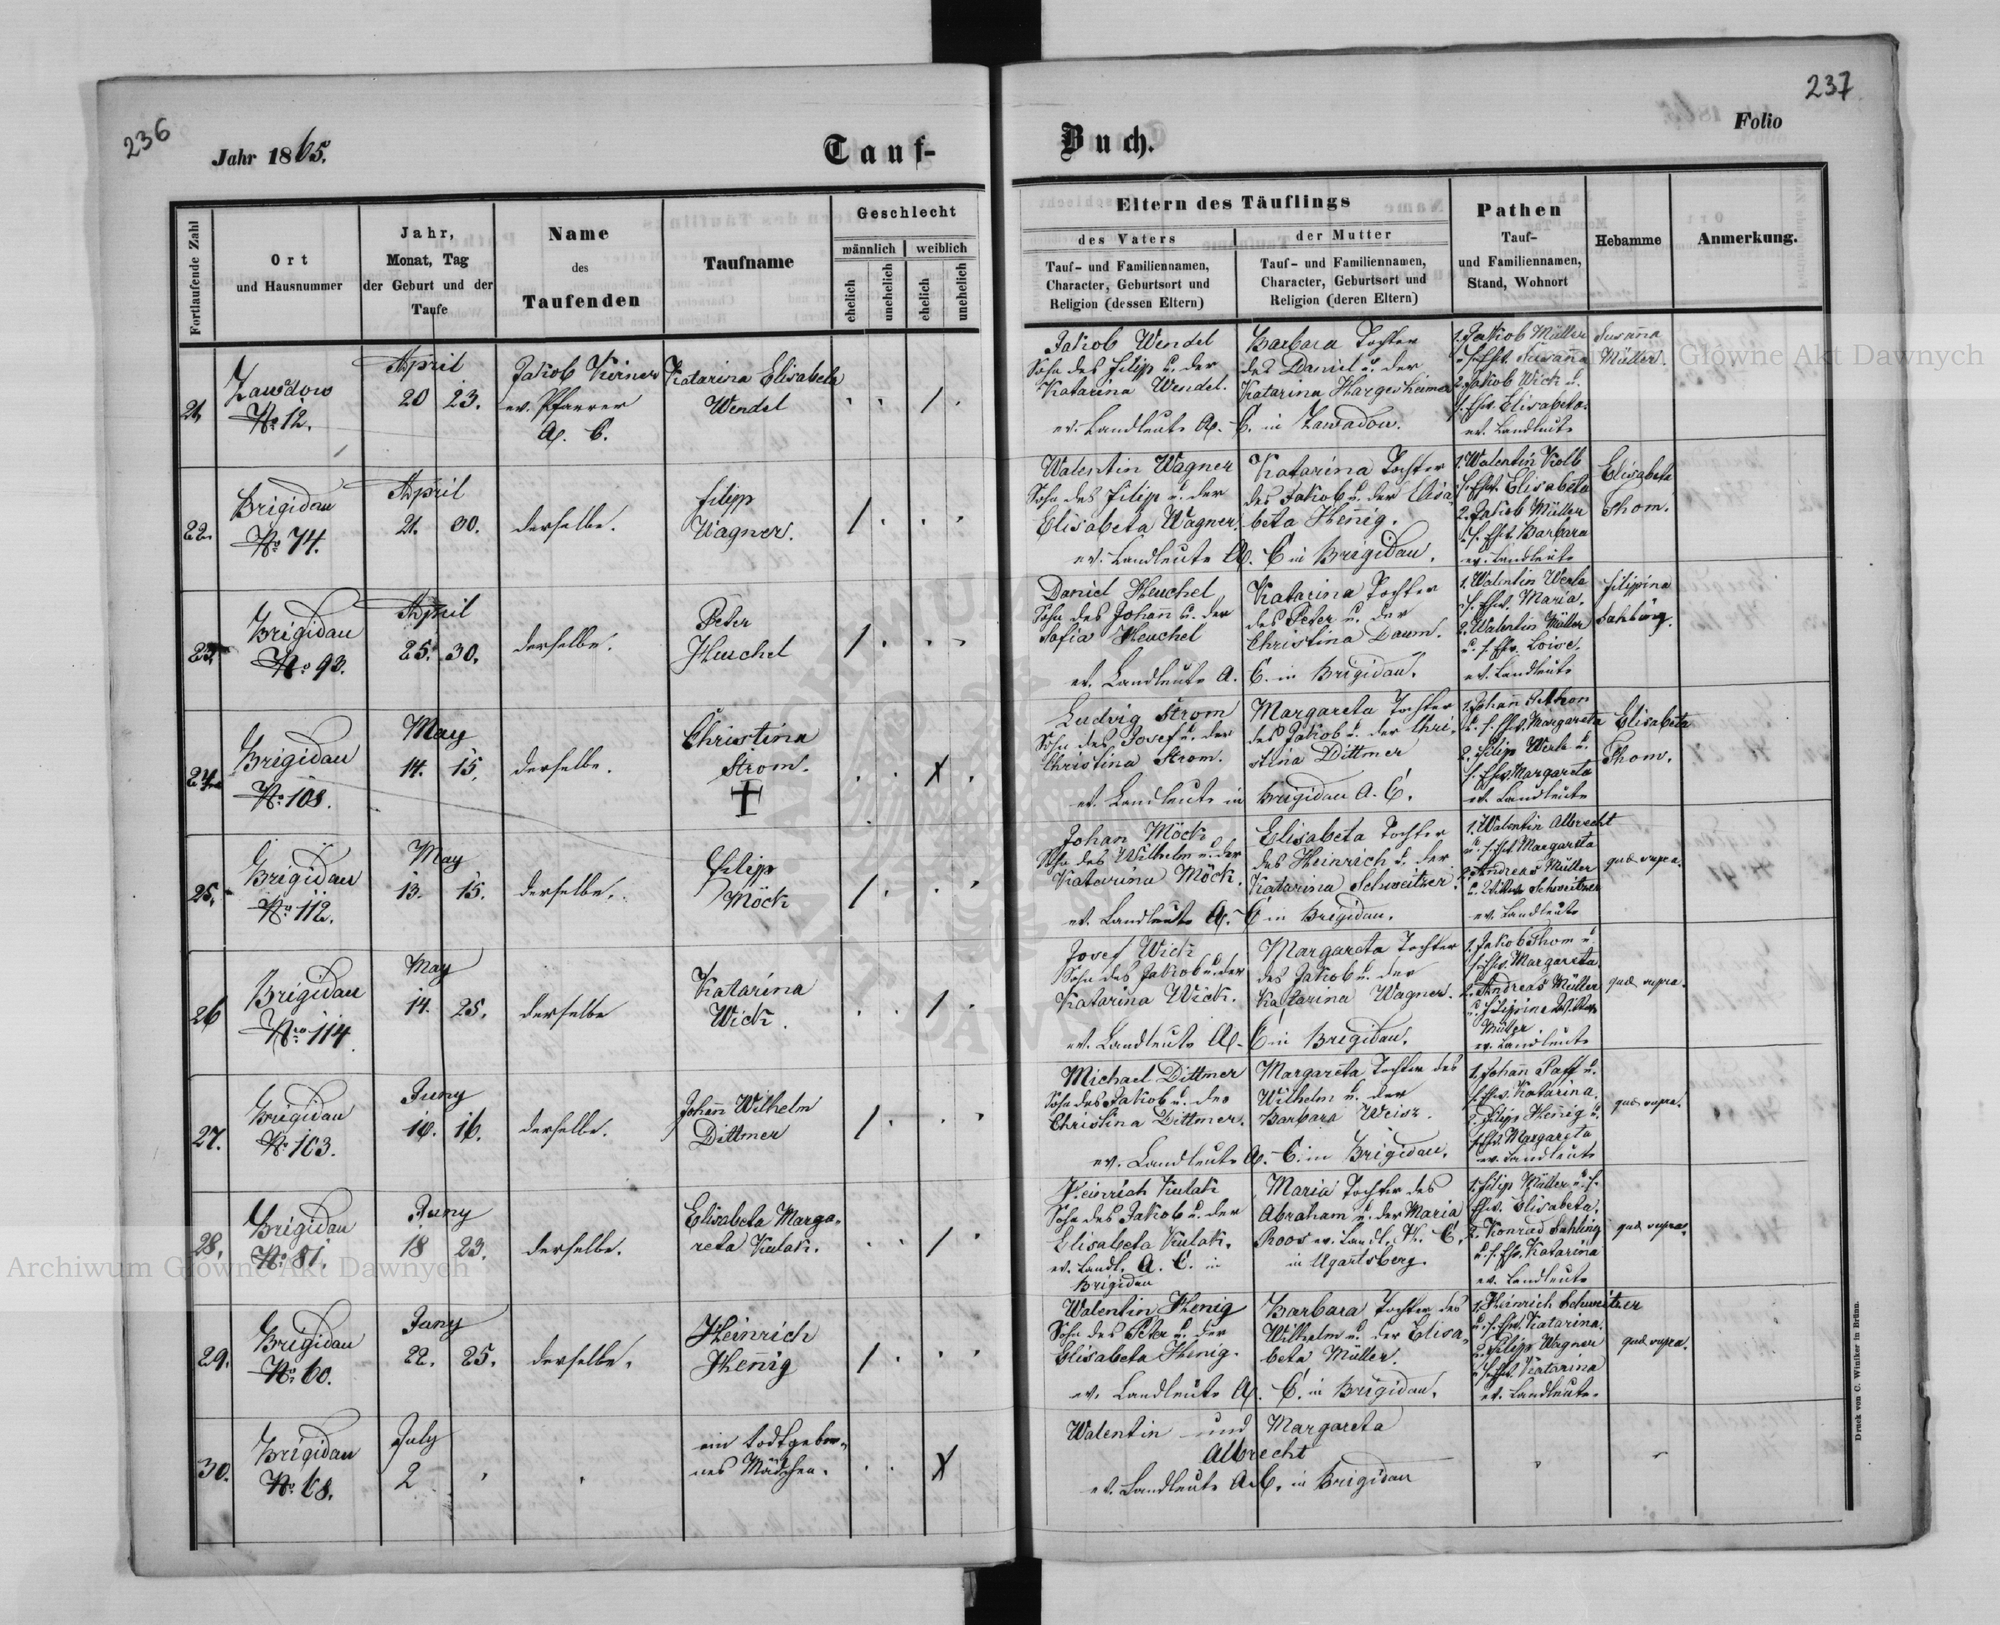 236
Jahr 1865.
Tauf-
Buch.
237
Folio
Fortlaufende Zahl
Ort
und Hausnummer
Jahr,
Monat, Tag
der Geburt und der
Taufe
Name
des
Taufenden
Taufname
Geschlecht
männlich
weiblich
ehelich
unehelich
ehelich
unehelich
Eltern des Täuflings
des Vaters
Tauf- und Familiennamen,
Character, Geburtsort und
Religion (dessen Eltern)
der Mutter
Tauf- und Familiennamen,
Character, Geburtsort und
Religion (deren Eltern)
Pathen
Tauf-
und Familiennamen,
Stand, Wohnort
Hebamme
Anmerkung.
21
Zawadow
No 12.
April
20 23.
Jakob Kirner
ev. Pfarrer
A. C.
Katarina Elisabeta
Wendel
Jakob Wendel
Sohn des Filip u. der
Katarina Wendel.
Barbara Tochter
des Daniel u. der
Katarina Hargesheimer
ev. Landleute A. C. in Zawadow.
1. Jakob Müller
u. s. Ehw. Susanna
2. Jakob Wick u.
s. Ehw. Elisabeta.
ev. Landleute
Susanna
Müller.
22.
Brigidau
No 74.
April
21. 30.
derselbe.
Filipp
Wagner.
Walentin Wagner
Sohn des Filip u. der
Elisabeta Wagner.
Katarina Tochter
des Jakob u. der Elisa-
beta Hennig.
ev. Landleute A. C in Brigidau.
1. Walentin Kolb
u. s. Ehw. Elisabeta
2. Jakob Müller
u. s. Ehw. Barbara
ev. Landleute
Elisabeta
Thom.
23.
Brigidau
No 93.
April
25. 30.
derselbe.
Peter
Heuchel
Daniel Heuchel
Sohn des Johann u. der
Sofia Heuchel
Katarina Tochter
des Peter u. der
Christina Daum.
ev. Landleute A. C. in Brigidau.
1. Walentin Werle
u. s. Ehw. Maria.
2. Walentin Müller
u. s. Ehw. Loise.
ev. Landleute
Filipina
24.
Brigidau
No 108.
May
14. 15.
derselbe.
Christina
Strom.
Ludwig Strom
Sohn des Josef u. der
Christina Strom.
Margareta Tochter
des Jakob u. der Chri-
stina Dittmer
ev. Landleute in Brigidau A. C.
1. Johann
u. s. Ehw. Margareta
2. Filip Werle u.
s. Ehw. Margareta
ev. Landleute
Elisabeta
Thom.
25.
Brigidau
No 112.
May
13. 15.
derselbe.
Filipp
Möck
Johan Möck
Sohn des Wilhelm u. der
Katarina Möck.
Elisabeta Tochter
des Heinrich u. der
Katarina Schweitzer.
ev. Landleute A. C in Brigidau.
1. Walentin Albrecht
u. s. Ehw. Margareta
2. Andreas Müller
u. Schweitzer
ev. Landleute
quae supra.
26
Brigidau
Nro 114.
May
14. 25.
derselbe
Katarina
Wick.
Josef Wick
Sohn des Jakob u. der
Katarina Wick.
Margareta Tochter
des Jakob u. der
Katarina Wagner.
ev. Landleute A. C in Brigidau.
1. Jakob Thom u.
s. Ehw. Margareta.
2. Andreas Müller
u. Filipina
Müller
ev. Landleute
quae supra.
27.
Brigidau
No 103.
Juny
16. 16.
derselbe.
Johann Wilhelm
Dittmer
Michael Dittmer
Sohn des Jakob u. der
Christina Dittmer.
Margareta Tochter des
Wilhelm u. der
Barbara Weisz.
ev. Landleute A. C. in Brigidau.
1. Johann Paff u.
s. Ehw. Katarina.
2. Filip Hennig u.
s. Ehw. Margareta
ev. Landleute
quae supra.
28.
Brigidau
No 81.
Juny
18 23.
derselbe.
Elisabeta Marga-
reta Kulak.
Heinrich Kulak
Sohn des Jakob u. der
Elisabeta Kulak.
ev. Landl. A. C. in
Brigidau
Maria Tochter des
Abraham u. der Maria
Roos ev. Landl. H. C.
in Ugartsberg.
1. Filip Müller u. s.
Ehw. Elisabeta.
2. Konrad Sehling
u. s. Ehw. Katarina
ev. Landleute
quae supra.
29.
Brigidau
No 60.
Juny
22. 25.
derselbe.
Heinrich
Hennig
Walentin Henig
Sohn des Peter u. der
Elisabeta Henig.
Barbara Tochter des
Wilhelm u. der Elisa-
beta Müller.
ev. Landleute A. C. in Brigidau.
1. Heinrich Schweitzer
u. s. Ehw. Katarina.
2. Filip Wagner
u. s. Ehw. Katarina
ev. Landleute.
quae supra.
30.
Brigidau
No 68.
July
2
ein todtgebor-
nes Mädchen.
Walentin und Margareta
Albrecht
ev. Landleute A. C. in Brigidau
Druck von C. Winiker in Brünn.
Archiwum Główne Akt Dawnych
Główne Akt Dawnych